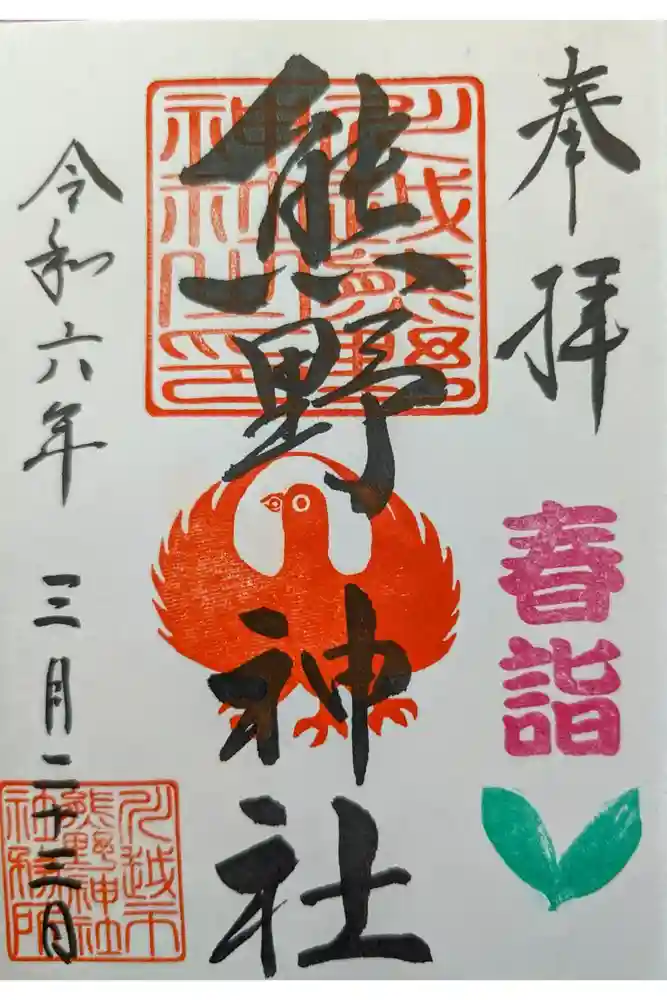 奉拝
春詣
熊野神社
川越熊野
神社之印
令和六年 三月二十三日
川越市
熊野神社
社務所